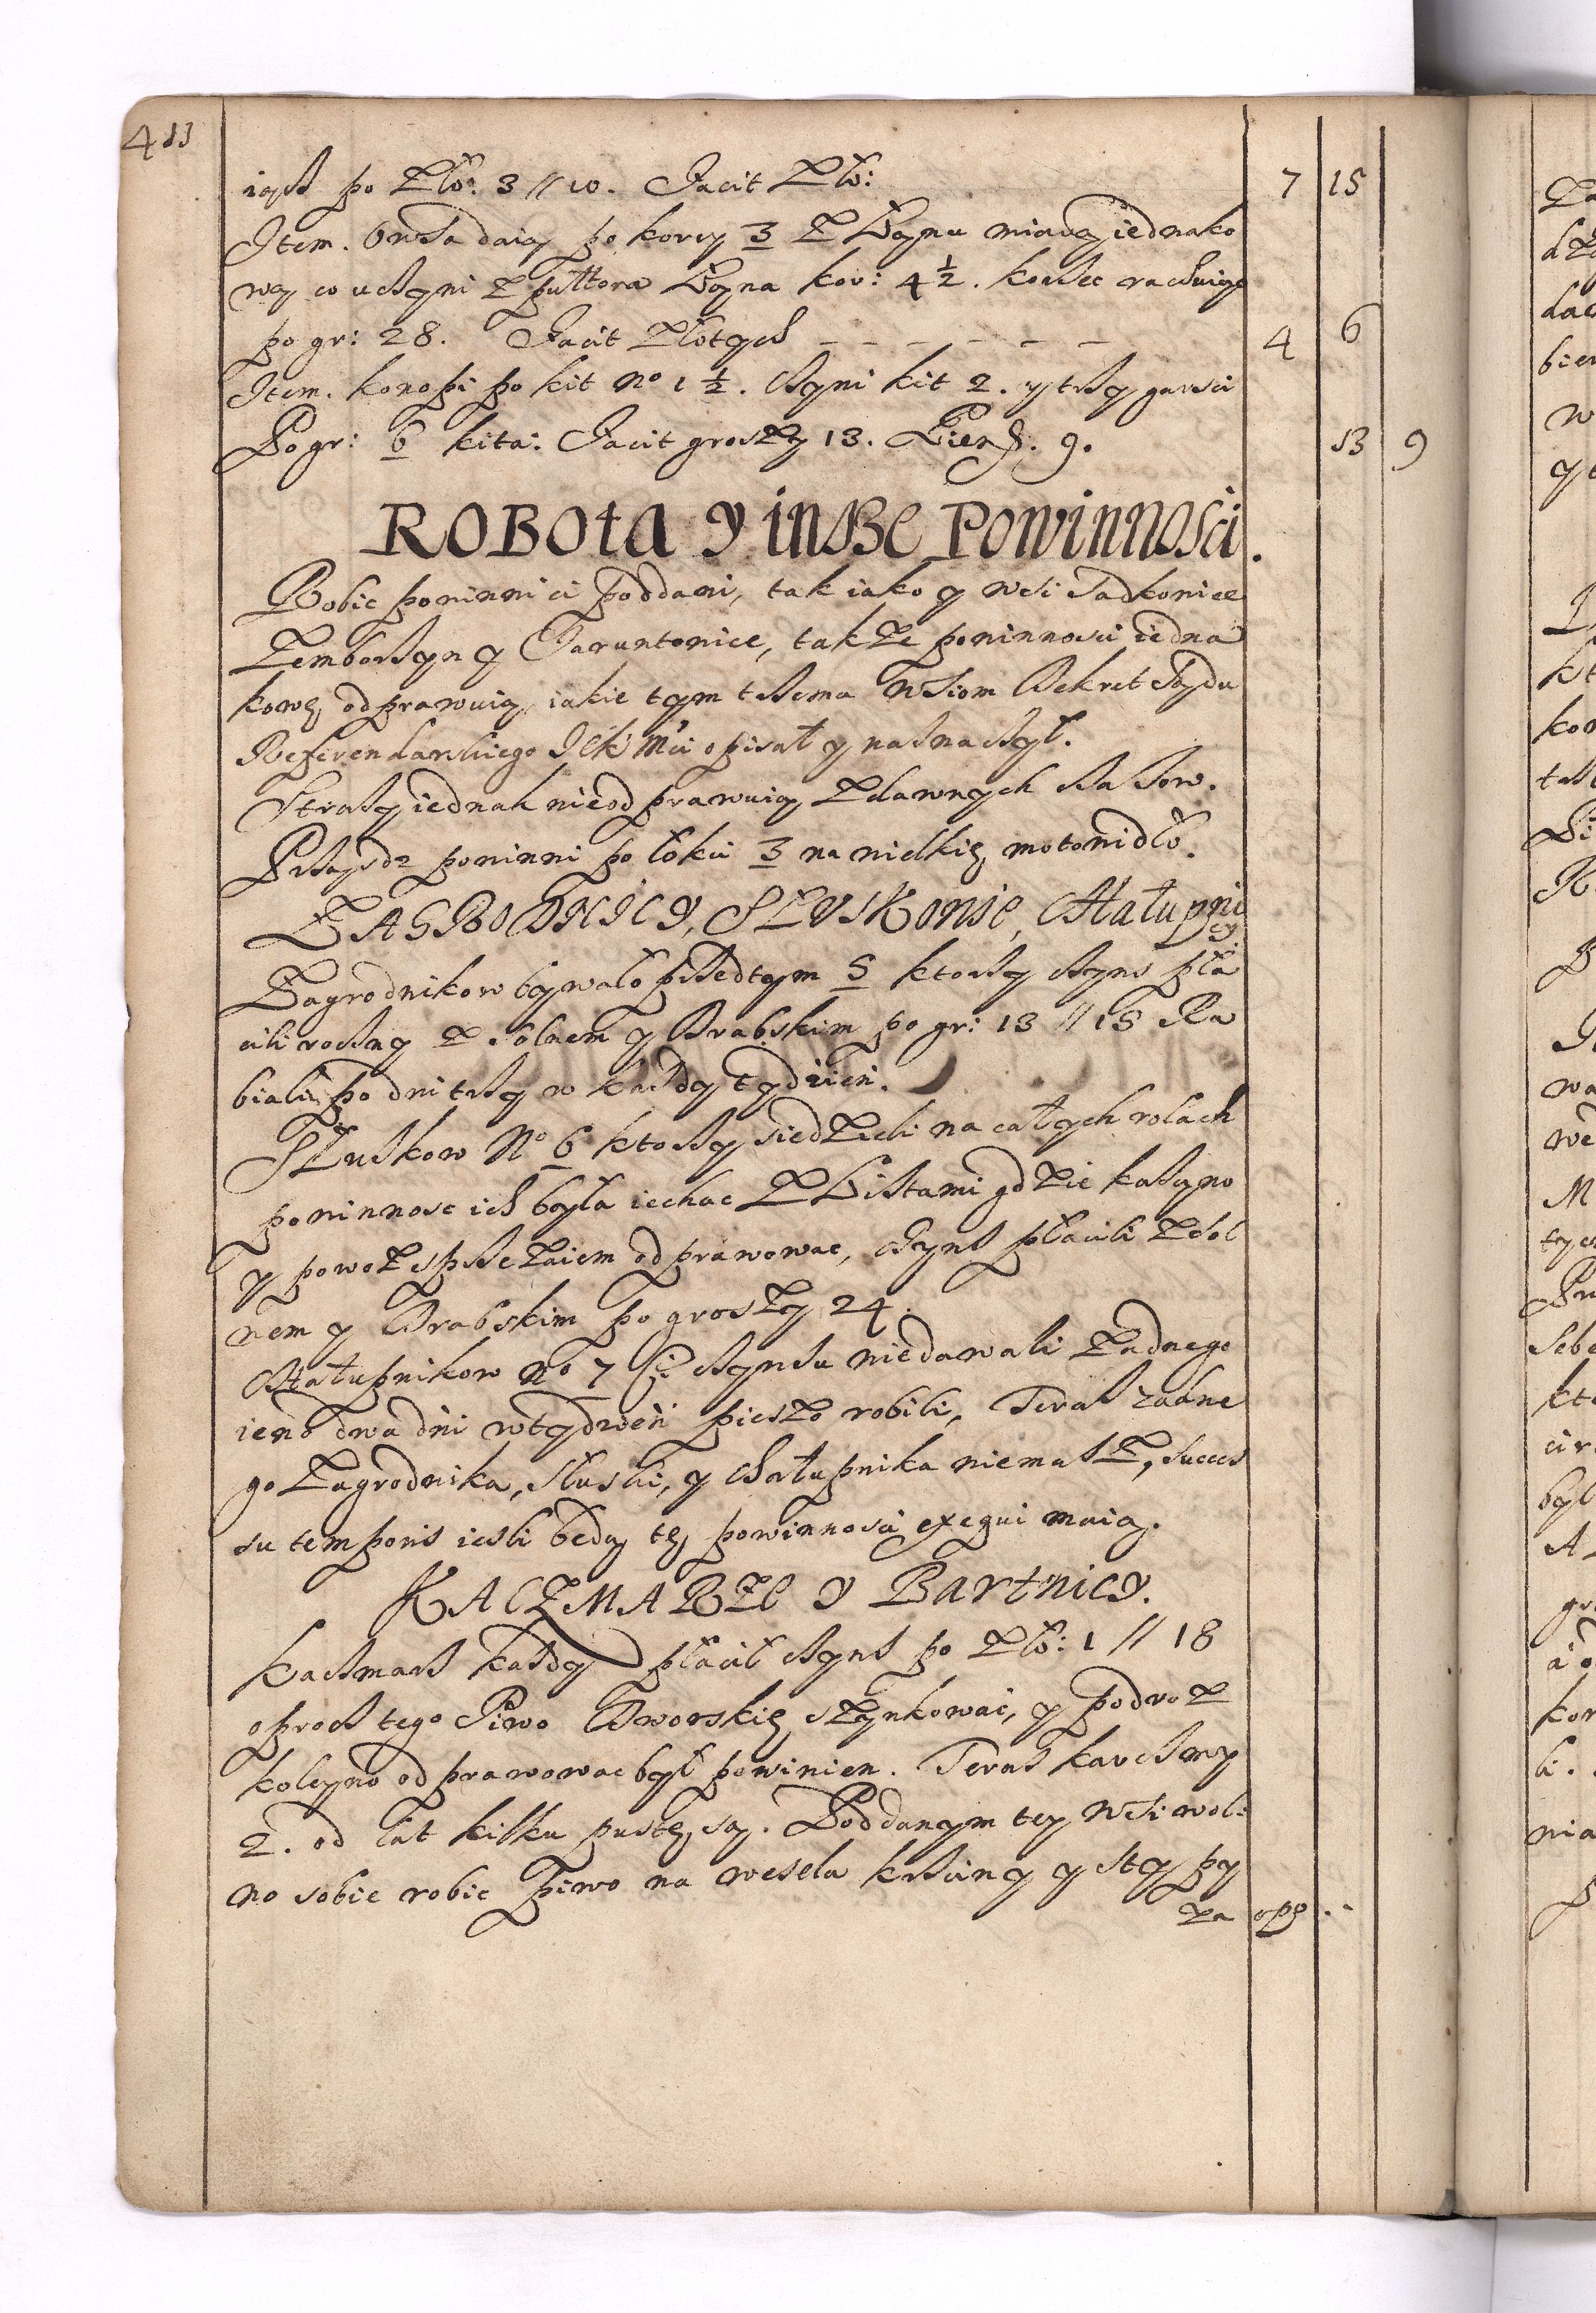 411
iąsz po Zło: 3 // 10. Facit Zło: 7 15
Item. Owsa daią po korcy 3 Z Łanu miarą iednako
wą co uczyni Z pułtora Łana kor: 4 ½. korzec rachuiąc
po gr: 28. Facit Złotych – – – – – – 4 6
Item. konopi po kit No 1 ½. czyni kit 2. y trzy garści
Po gr: 6 kita: Facit groszy 13. Pień. 9. 13 9
ROBOta y insze Powinnosci.
Robic powinni ci poddani, tak iako y wsi Sadkowice
Zemborzyn y Jaruntowice, takze powinnosci iedna
kowe odprawuią, iakie tym trzema wsiom Dekret Sądu
Referendarskiego JEK Mci opisał y naznaczył.
Strazy iednak nieodprawuią Zdawnych czasow.
Przaysdz powinni po łokci 3 na wielkie motowidło.
ZAGRODNICY, SŁUSKowie, Chałupni
cy
Zagrodnikow bywało przedtym 5 ktorzy czyns pła
cili roczny z Solnem y Drabskim po gr: 13 // 15 Ra
biali po dni trzy w kazdy tydzień.
Słuszkow No 6 ktorzy siedzieli na całych rolach
powinnosc ich była iechac Z Listami gdzie kazano
y powoz sprzezaiem odprawowac, czyns płacili z Sol
nem y Drabskim po groszy 24.
Chałupnikow No 7 Ci czynszu niedawali zadnego
ieno dwa dni wtydzień pieszo robili, Teraz zadne
go Zagrodnika, słuski, y chałupnika niemasz, succes
su temporis iesli będą te powinnosci exequi maią.
KACZMARZE y Bartnicy.
Kaczmarz kazdy płacił czyns po Zło: 1 // 18
oprocz tego Piwo Dworskie szynkowac, y podwoz
koleyno odprawowac był powinien. Teraz karczmy
2. od lat kilku puste są. Poddanym tey wsi wol:
no sobie robic piwo na wesela krzciny y sty py
za